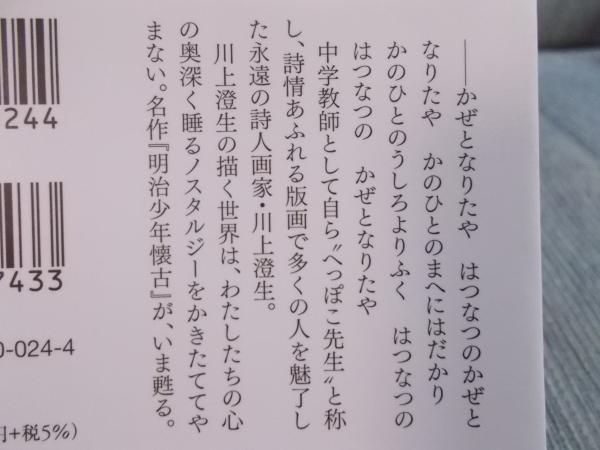 ――かぜとなりたや　はつなつのかぜと
なりたや　かのひとのまへにはだかり
かのひとのうしろよりふく　はつなつの
はつなつの　かぜとなりたや
中学教師として自ら〝へっぽこ先生〟と称
し、詩情あふれる版画で多くの人を魅了し
た永遠の詩人画家・川上澄生。
川上澄生の描く世界は、わたしたちの心
の奥深く睡るノスタルジーをかきたててや
まない。名作『明治少年懐古』が、いま甦る。
244
7433
0-024-4
円+税5%）